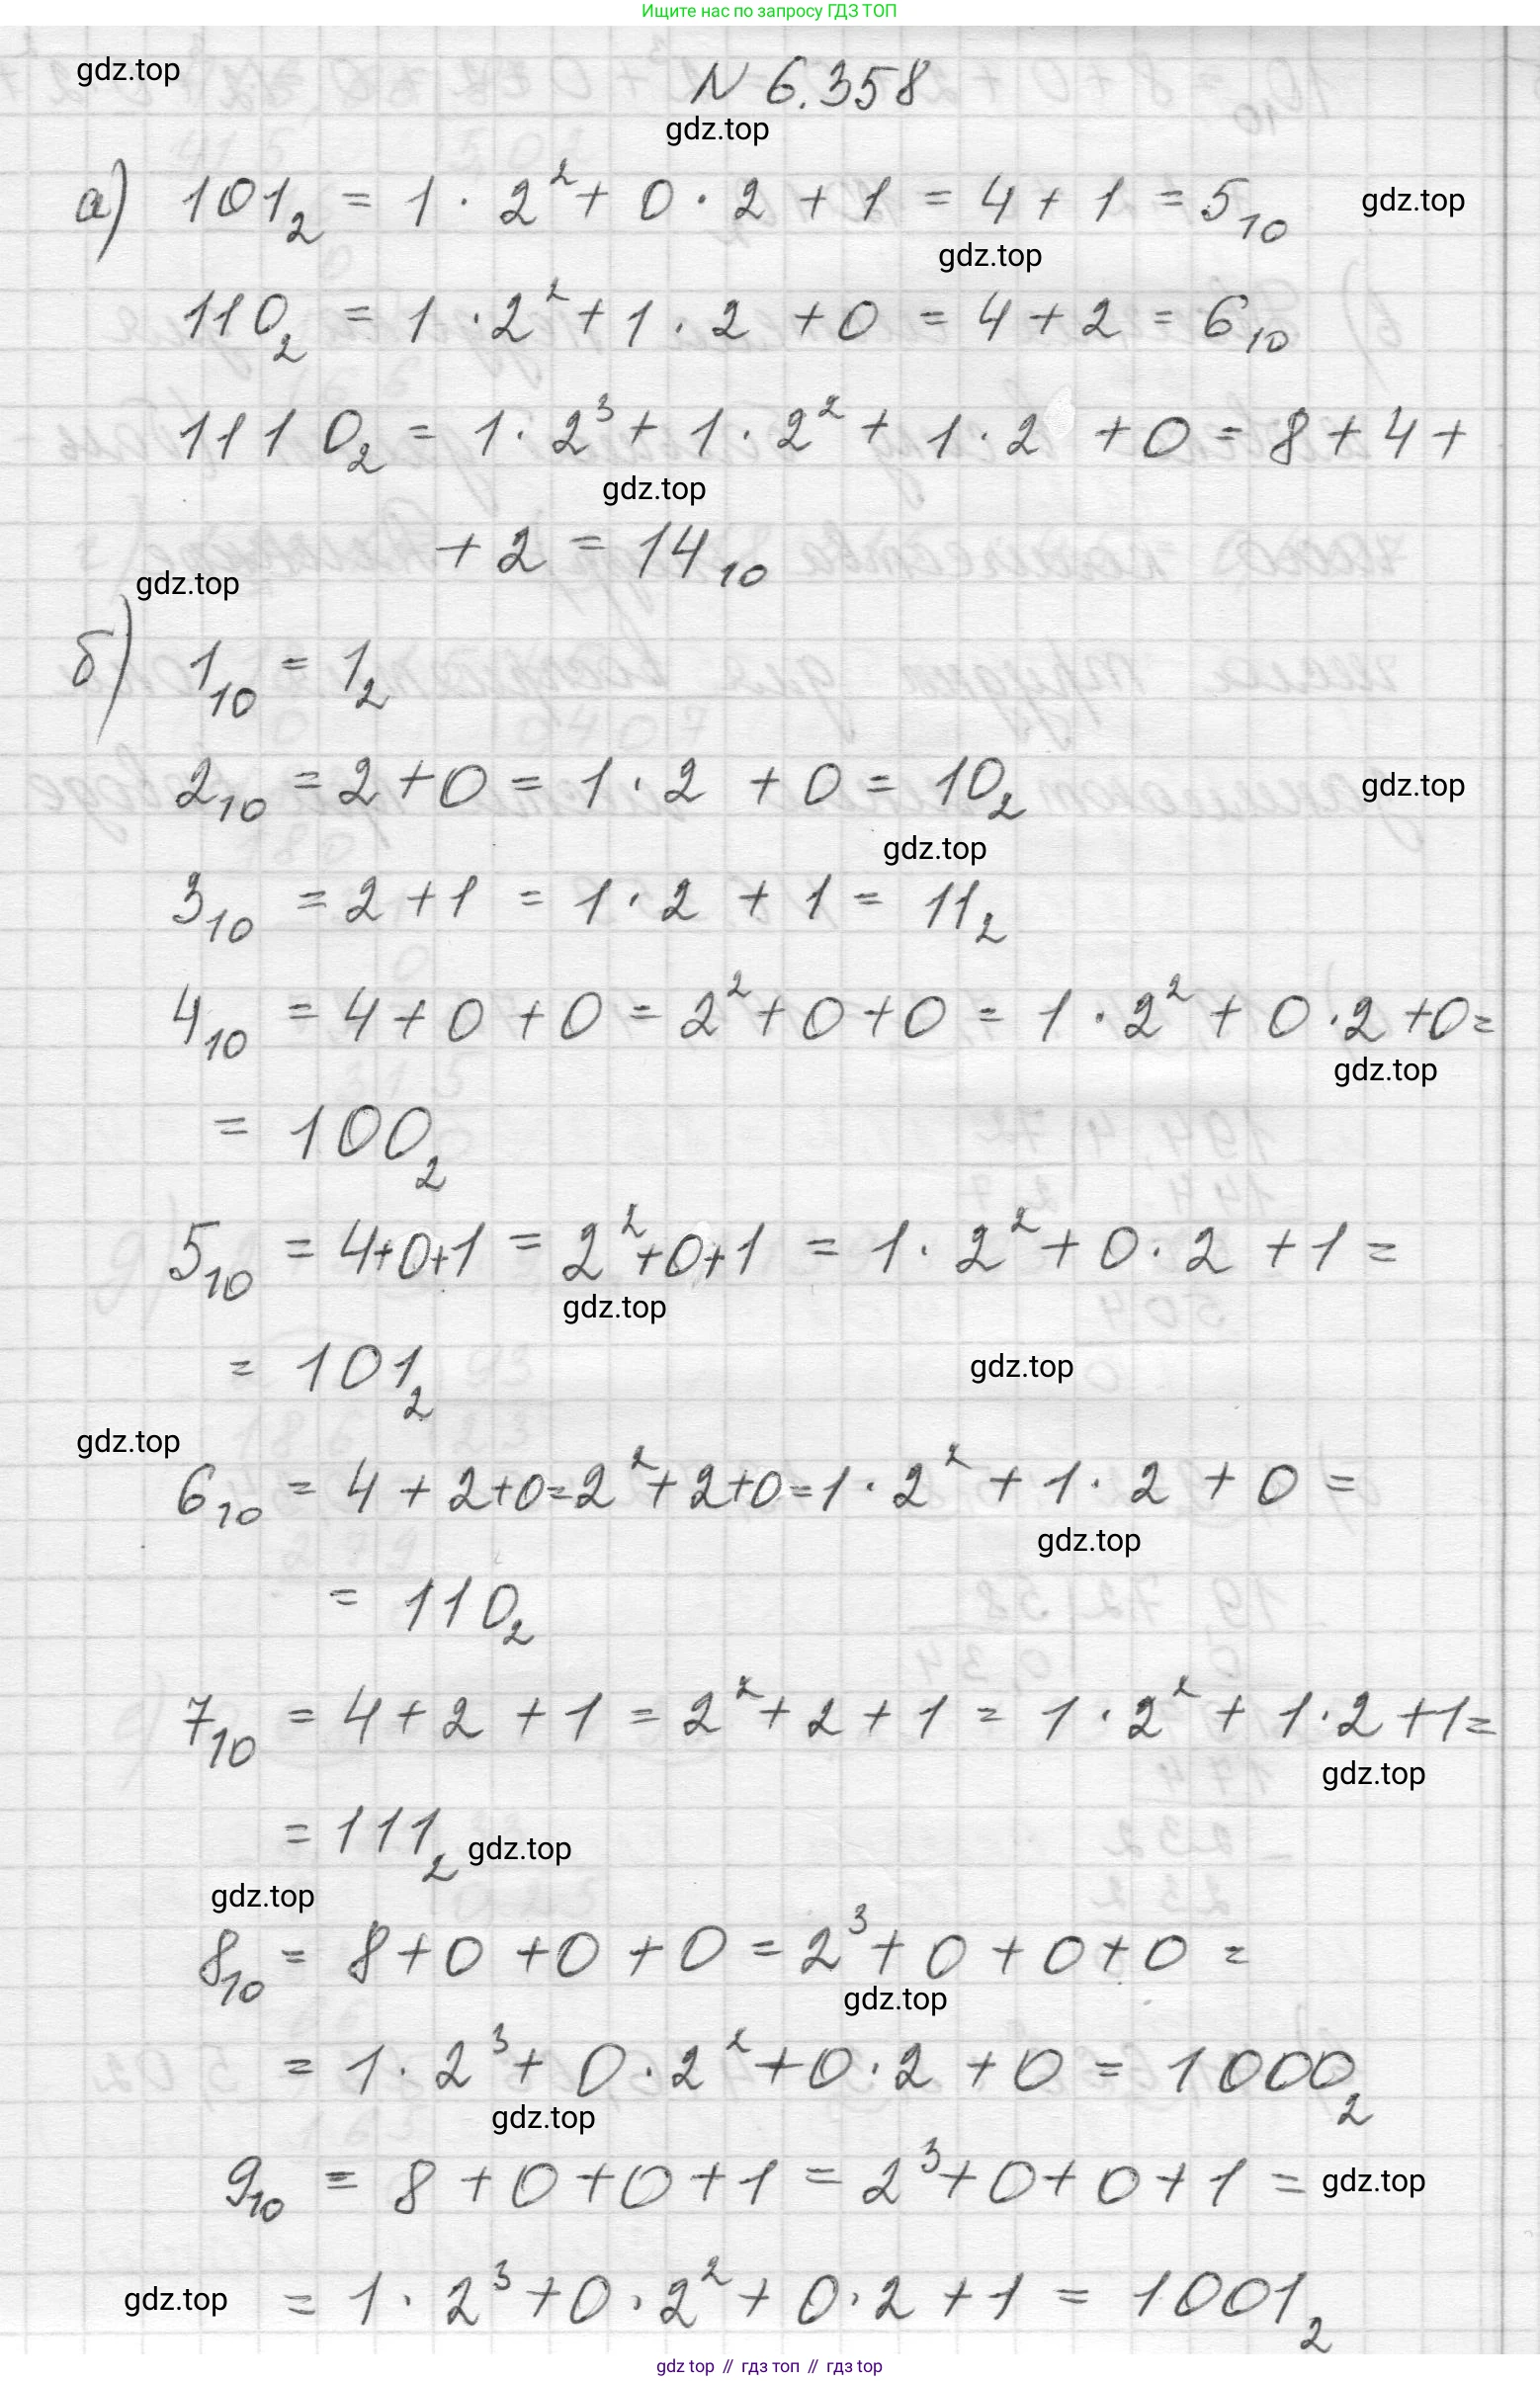 Ищите нас по запросу ГДЗ ТОП
gdz.top
N 6.358
gdz.top
а) 101₂ = 1 · 2² + 0 · 2 + 1 = 4 + 1 = 5₁₀ gdz.top
gdz.top
110₂ = 1 · 2² + 1 · 2 + 0 = 4 + 2 = 6₁₀
1110₂ = 1 · 2³ + 1 · 2² + 1 · 2 + 0 = 8 + 4 +
gdz.top
+ 2 = 14₁₀
gdz.top
б) 1₁₀ = 1₂
2₁₀ = 2 + 0 = 1 · 2 + 0 = 10₂ gdz.top
gdz.top
3₁₀ = 2 + 1 = 1 · 2 + 1 = 11₂
4₁₀ = 4 + 0 + 0 = 2² + 0 + 0 = 1 · 2² + 0 · 2 + 0 =
gdz.top
= 100₂
5₁₀ = 4 + 0 + 1 = 2² + 0 + 1 = 1 · 2² + 0 · 2 + 1 =
gdz.top
= 101₂ gdz.top
gdz.top
6₁₀ = 4 + 2 + 0 = 2² + 2 + 0 = 1 · 2² + 1 · 2 + 0 =
gdz.top
= 110₂
7₁₀ = 4 + 2 + 1 = 2² + 2 + 1 = 1 · 2² + 1 · 2 + 1 =
gdz.top
= 111₂ gdz.top
gdz.top
8₁₀ = 8 + 0 + 0 + 0 = 2³ + 0 + 0 + 0 =
gdz.top
= 1 · 2³ + 0 · 2² + 0 · 2 + 0 = 1000₂
gdz.top
9₁₀ = 8 + 0 + 0 + 1 = 2³ + 0 + 0 + 1 = gdz.top
gdz.top = 1 · 2³ + 0 · 2² + 0 · 2 + 1 = 1001₂
gdz top // гдз топ // gdz top